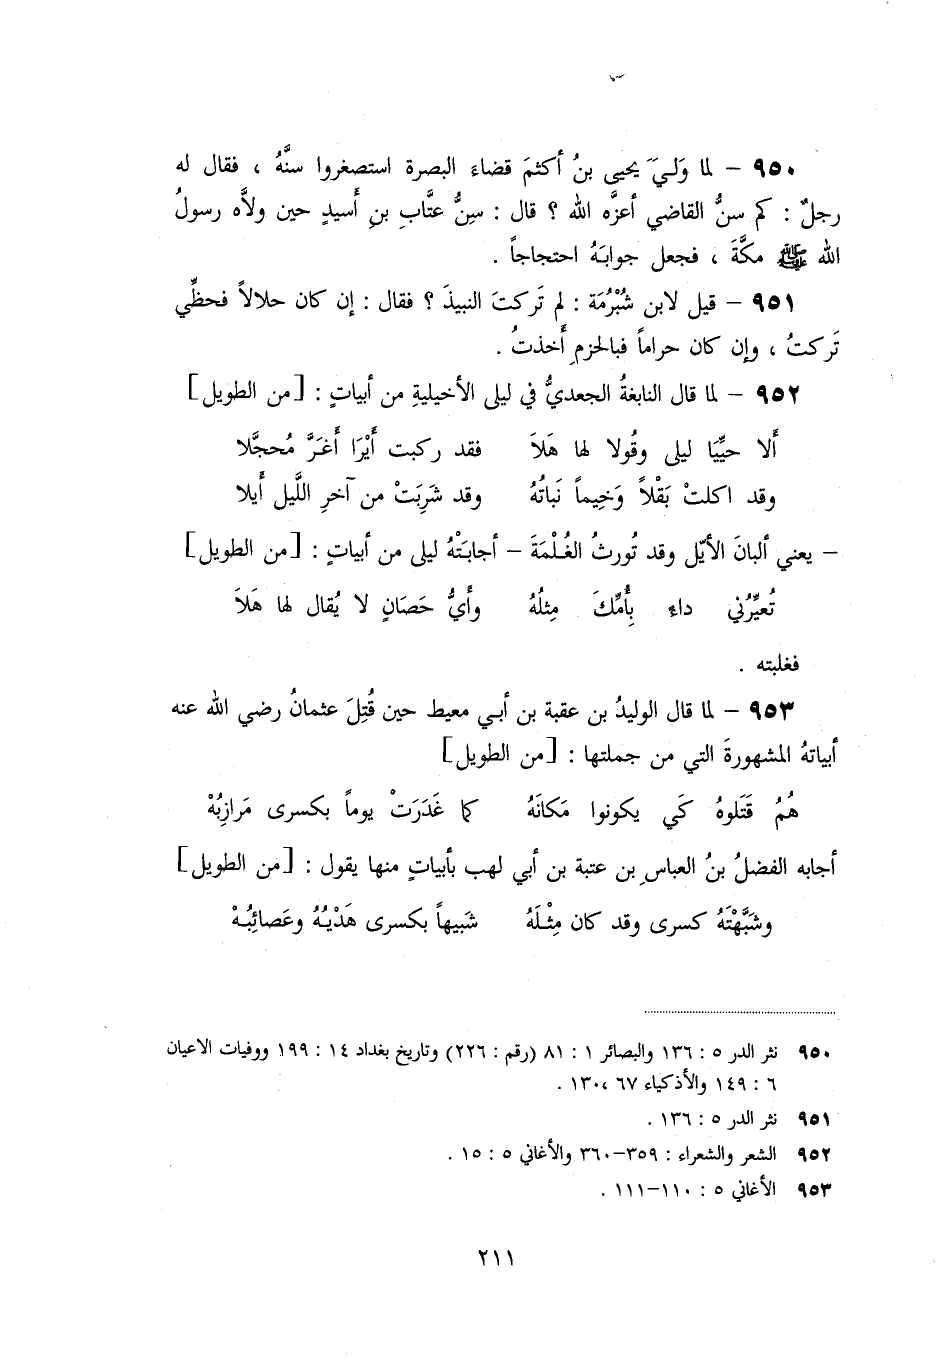 ٩٥٠ – لما وَليَ يحيى بنُ أكثمَ قضاءَ البصرة استصغروا سنَّهُ ، فقال له
رجلٌ : كم سنُّ القاضي أعزَّه الله ؟ قال : سِنُّ عتَّابِ بنِ أَسيدٍ حين ولاَّه رسولُ
الله ﷺ مكَّةَ ، فجعل جوابَهُ احتجاجاً .
٩٥١ – قيل لابن شُبْرُمَة : لم تَركتَ النبيذَ ؟ فقال : إن كان حلالاً فحظِّي
تَركتُ ، وإن كان حراماً فبالحزمِ أَخذتُ .
٩٥٢ – لما قال النابغةُ الجعديُّ في ليلى الأخيليةِ من أبياتٍ : [من الطويل]
أَلا حيِّيَا ليلى وقُولا لها هَلاَ فقد ركبت أَيْرَا أَغَرَّ مُحجَّلا
وقد اكلتْ بَقْلاً وَخِيماً نَباتُهُ وقد شَرِبَتْ من آخرِ اللَّيل أَيلا
– يعني ألبانَ الأيّل وقد تُورثُ الغُلْمَةَ – أجابَتْهُ ليلى من أبياتٍ : [من الطويل]
تُعيِّرُني داء بِأُمِّكَ مِثلُهُ وأَيُّ حَصَانٍ لا يُقال لها هَلاَ
فغلبته .
٩٥٣ – لما قال الوليدُ بن عقبة بن أبي معيط حين قُتِلَ عثمانُ رضي الله عنه
أبياتهُ المشهورةَ التي من جملتها : [من الطويل]
هُمُ قَتَلوهُ كَي يكونوا مَكانَهُ كما غَدَرَتْ يوماً بكسرى مَرازِبُهْ
أجابه الفضلُ بنُ العباسِ بن عتبة بن أبي لهب بأبياتٍ منها يقول : [من الطويل]
وشَبَّهْتَهُ كسرى وقد كان مِثْلَهُ شبيهاً بكسرى هَدْيُهُ وعَصائِبُهْ
٩٥٠ نثر الدر ٥ : ١٣٦ والبصائر ١ : ٨١ (رقم : ٢٢٦) وتاريخ بغداد ١٤ : ١٩٩ ووفيات الاعيان
٦ : ١٤٩ والأذكياء ٦٧ ،١٣٠ .
٩٥١ نثر الدر ٥ : ١٣٦ .
٩٥٢ الشعر والشعراء : ٣٥٩–٣٦٠ والأغاني ٥ : ١٥ .
٩٥٣ الأغاني ٥ : ١١٠–١١١ .
٢١١